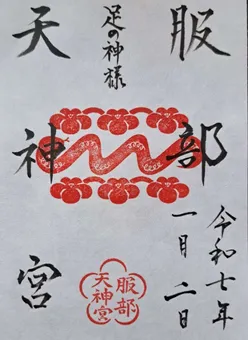 服部
天神宮
足の神様
令和七年
一月二日
服部
天神宮